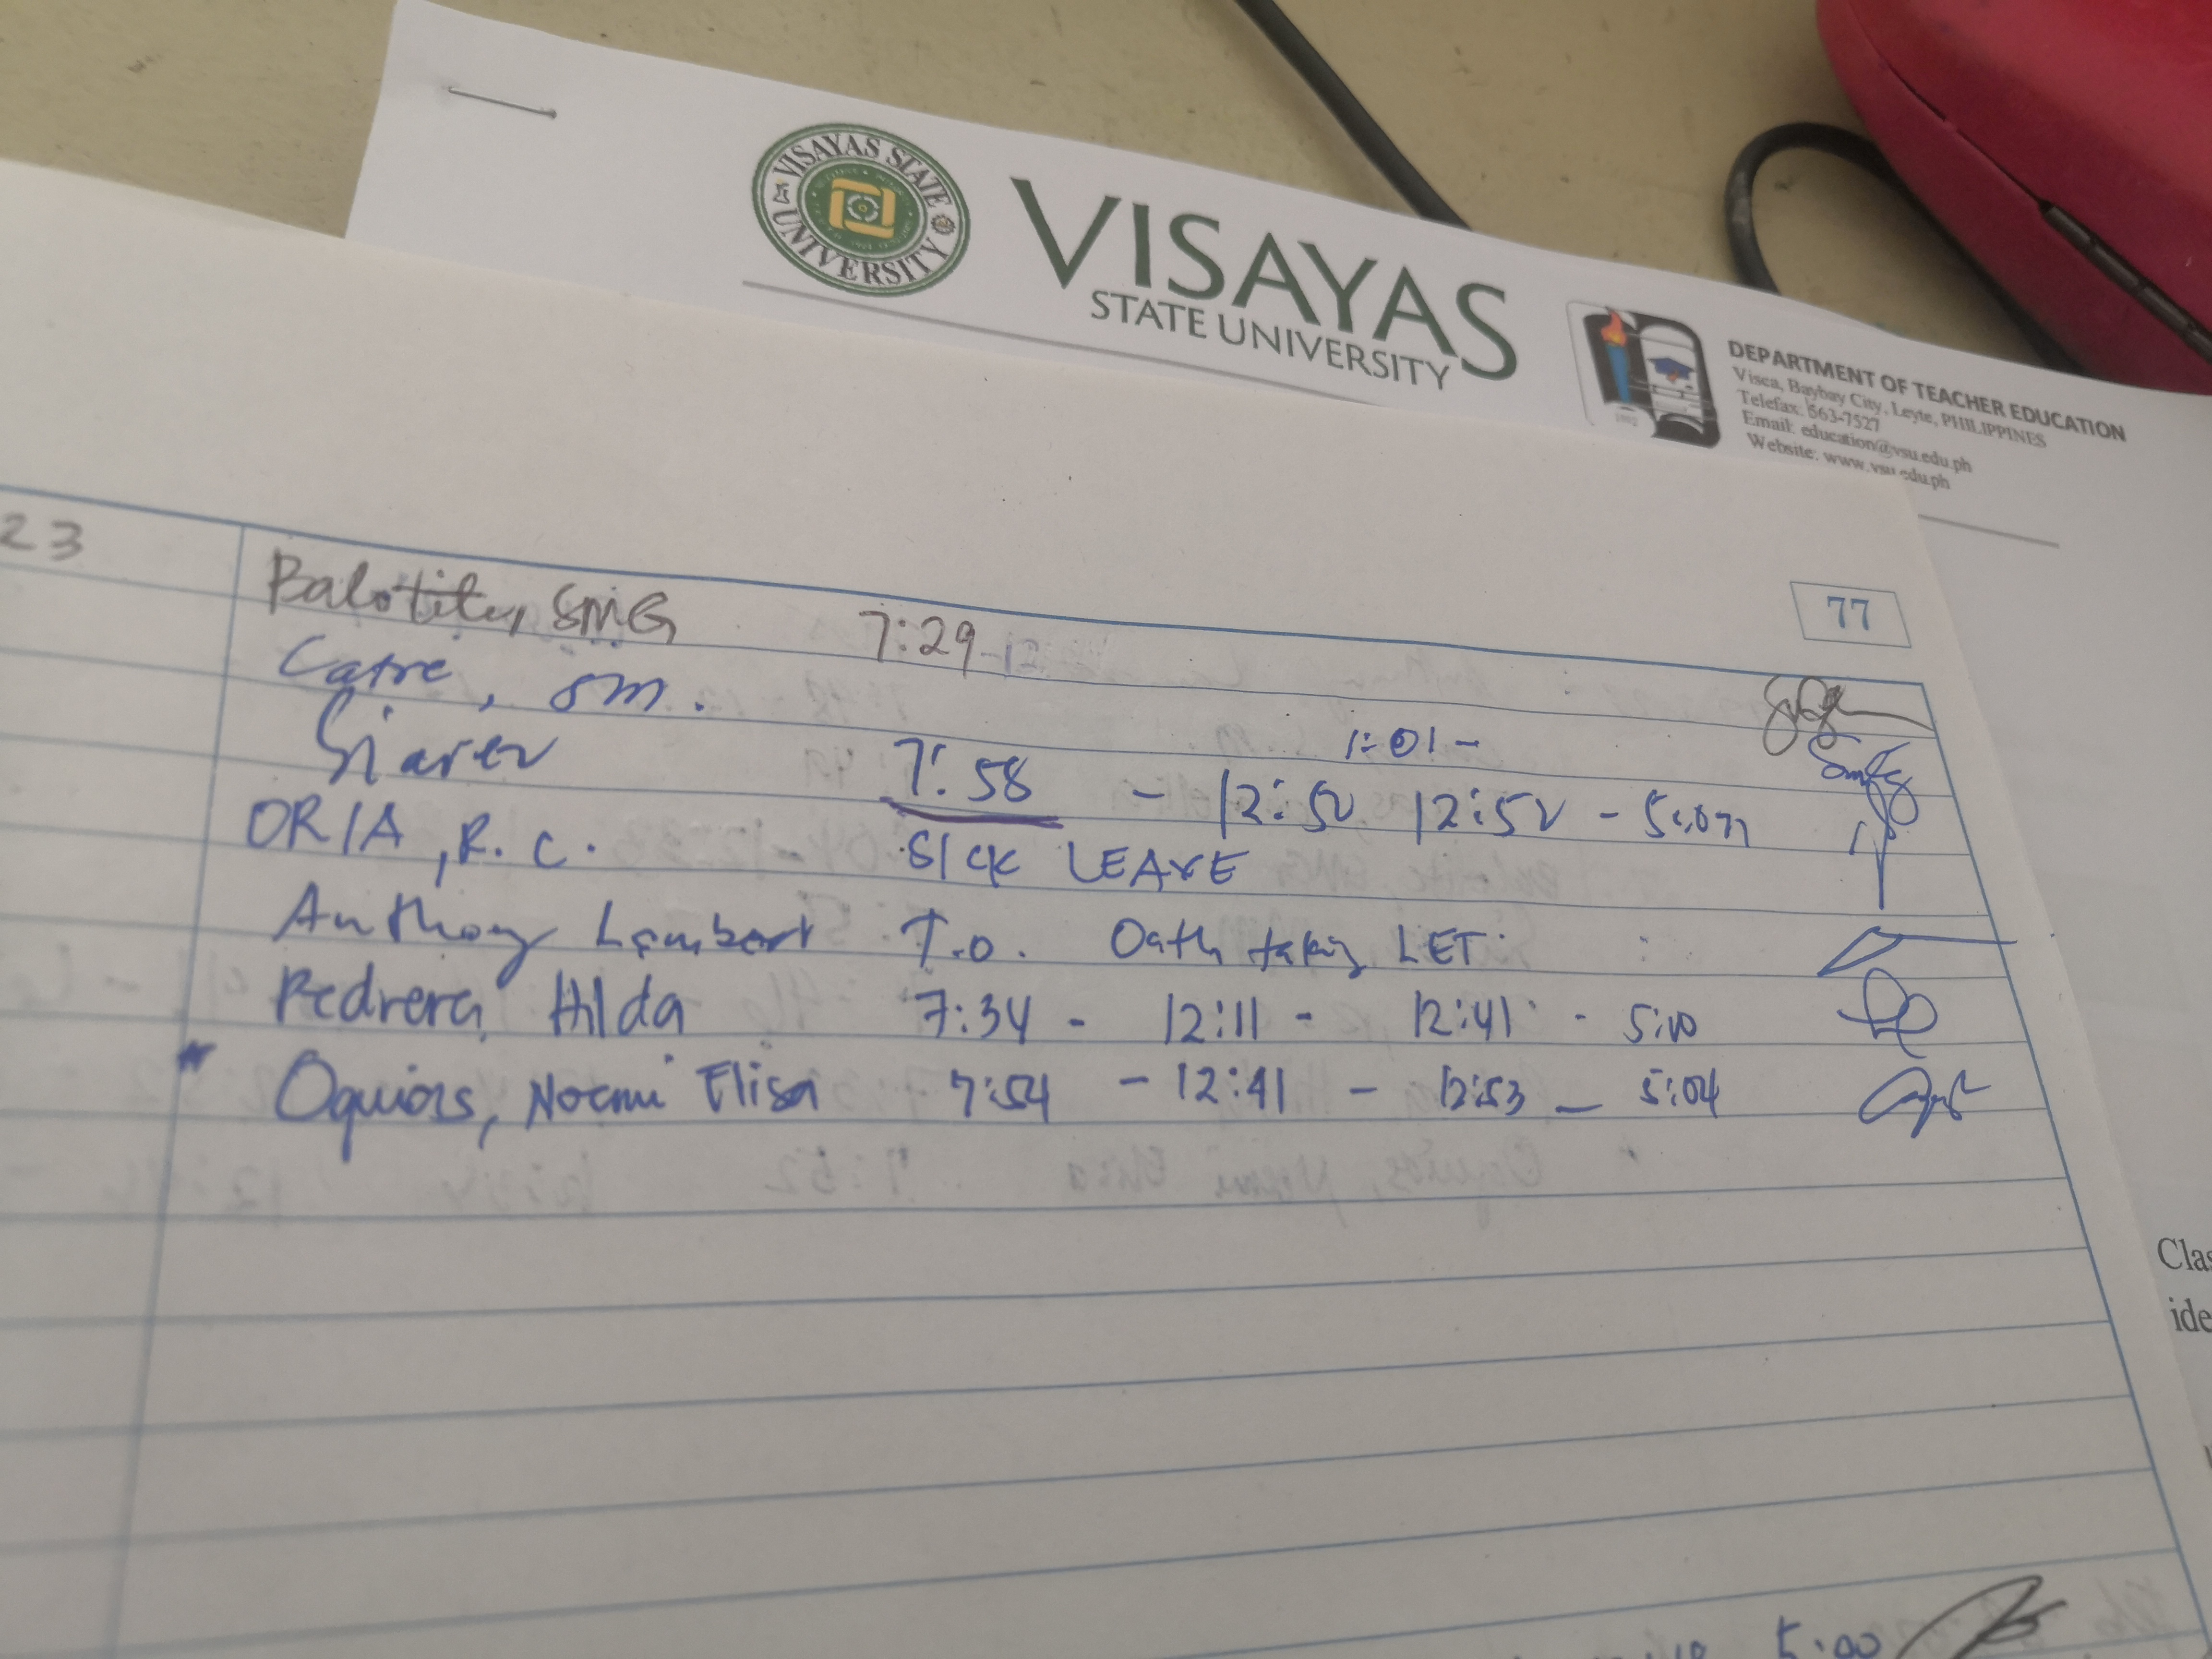 VISAYAS STATE UNIVERSITY
VISAYAS
STATE UNIVERSITY
DEPARTMENT OF TEACHER EDUCATION
Visca, Baybay City, Leyte, PHILIPPINES
Telefax: 563-7527
Email: education@vsu.edu.ph
Website: www.vsu.edu.ph
77
23
SMG 7:29 - 12
Catre, SM. 1:01 -
7:58 - 12:50 12:52 -
ORIA, R. C. SICK LEAVE
Anthony Lambert T.O. Oath taking LET
Pedrera, Hilda 7:34 - 12:11 - 12:41 - 5:10
Oquias, Noemi Elisa 7:54 - 12:41 - 12:53 - 5:04
Clas
ide
5:00